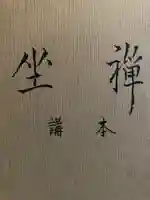 坐禅
講本